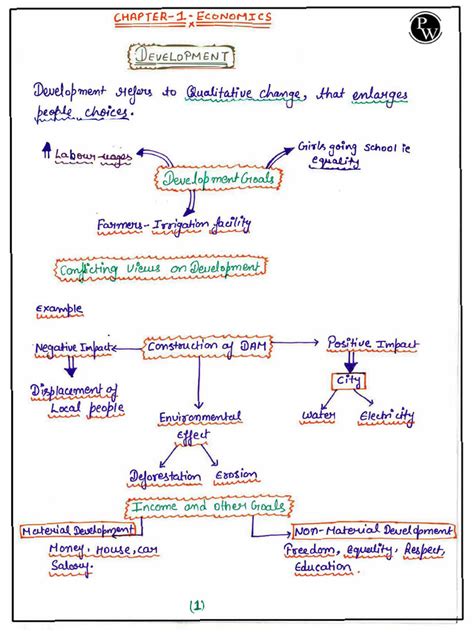 CHAPTER-1-ECONOMICS
PW
DEVELOPMENT
Development refers to Qualitative change, that enlarges
people choices.
Labour-wages
Girls going school ie
equality
Development Goals
Farmers-Irrigation facility
Conflicting views on Development
Example
Negative Impact
Construction of DAM
Positive Impact
Displacement of
Local people
City
Environmental
Effect
Water Electricity
Deforestation Erosion
Income and other Goals
Material Development
Non-Material Development
Money, House, car
Salary.
Freedom, equality, Respect,
Education.
(1)